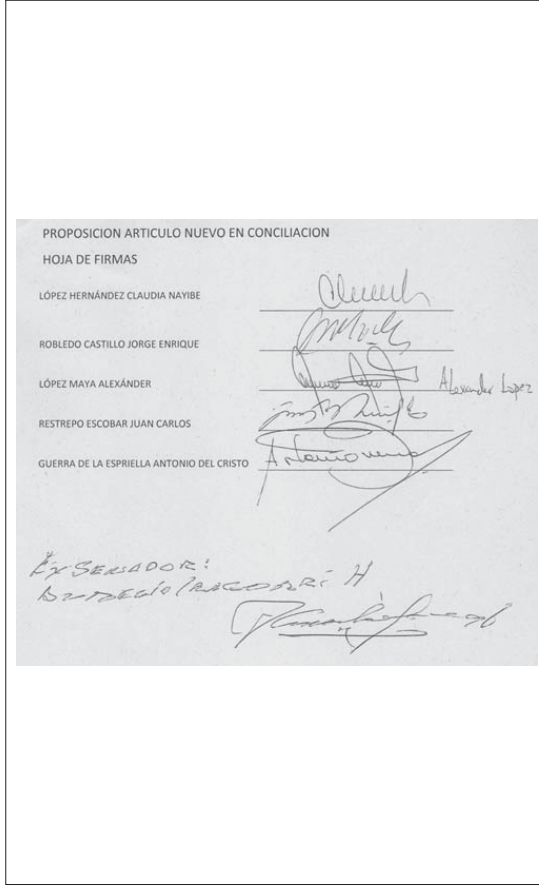 PROPOSICION ARTICULO NUEVO EN CONCILIACION
HOJA DE FIRMAS
LÓPEZ HERNÁNDEZ CLAUDIA NAYIBE
ROBLEDO CASTILLO JORGE ENRIQUE
LÓPEZ MAYA ALEXÁNDER
Alexander Lopez
RESTREPO ESCOBAR JUAN CARLOS
GUERRA DE LA ESPRIELLA ANTONIO DEL CRISTO
EX SENADOR: